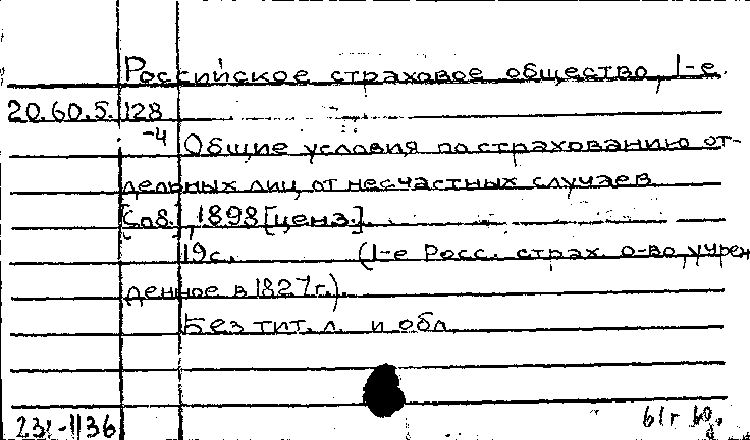 Российское страховое общество, 1-е.
20.60.5. 128
-4
Общие условия по страхованию от-
дельных лиц от несчастных случаев
[Спб.], 1898 [ценз.].
19 с. (1-е Росс. страх. о-во, учреж
денное в 1827 г.).
Без тит. л. и обл.
231-1136 61г